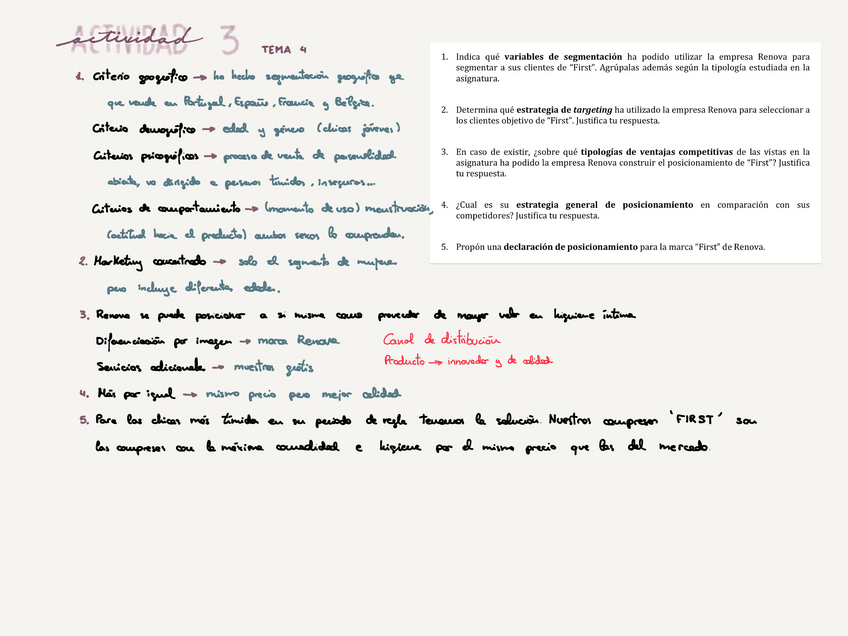 ACTIVIDAD 3
actividad
TEMA 4
1. Criterio geográfico → ha hecho segmentación geográfica ya
que vende en Portugal, España, Francia y Bélgica.
Criterio demográfico → edad y género (chicas jóvenes)
Criterios psicográficos → proceso de venta de personalidad
abierta, va dirigido a personas tímidas, inseguras...
Criterios de comportamiento → (momento de uso) menstruación,
(actitud hacia el producto) ambos sexos lo compraban.
2. Marketing concentrado → solo el segmento de mujeres
pero incluye diferentes edades.
3. Renova se puede posicionar a si misma como proveedor de mayor valor en higuiene íntima
Diferenciación por imagen → marca Renova
Servicios adicionales → muestras gratis
Canal de distribución
Producto → innovador y de calidad
4. Más por igual → mismo precio pero mejor calidad
5. Para las chicas más tímidas en su periodo de regla tenemos la solución. Nuestras compresas 'FIRST' son
las compresas con la máxima comodidad e higiene por el mismo precio que las del mercado.
1. Indica qué variables de segmentación ha podido utilizar la empresa Renova para
segmentar a sus clientes de "First". Agrúpalas además según la tipología estudiada en la
asignatura.
2. Determina qué estrategia de targeting ha utilizado la empresa Renova para seleccionar a
los clientes objetivo de "First". Justifica tu respuesta.
3. En caso de existir, ¿sobre qué tipologías de ventajas competitivas de las vistas en la
asignatura ha podido la empresa Renova construir el posicionamiento de "First"? Justifica
tu respuesta.
4. ¿Cual es su estrategia general de posicionamiento en comparación con sus
competidores? Justifica tu respuesta.
5. Propón una declaración de posicionamiento para la marca "First" de Renova.